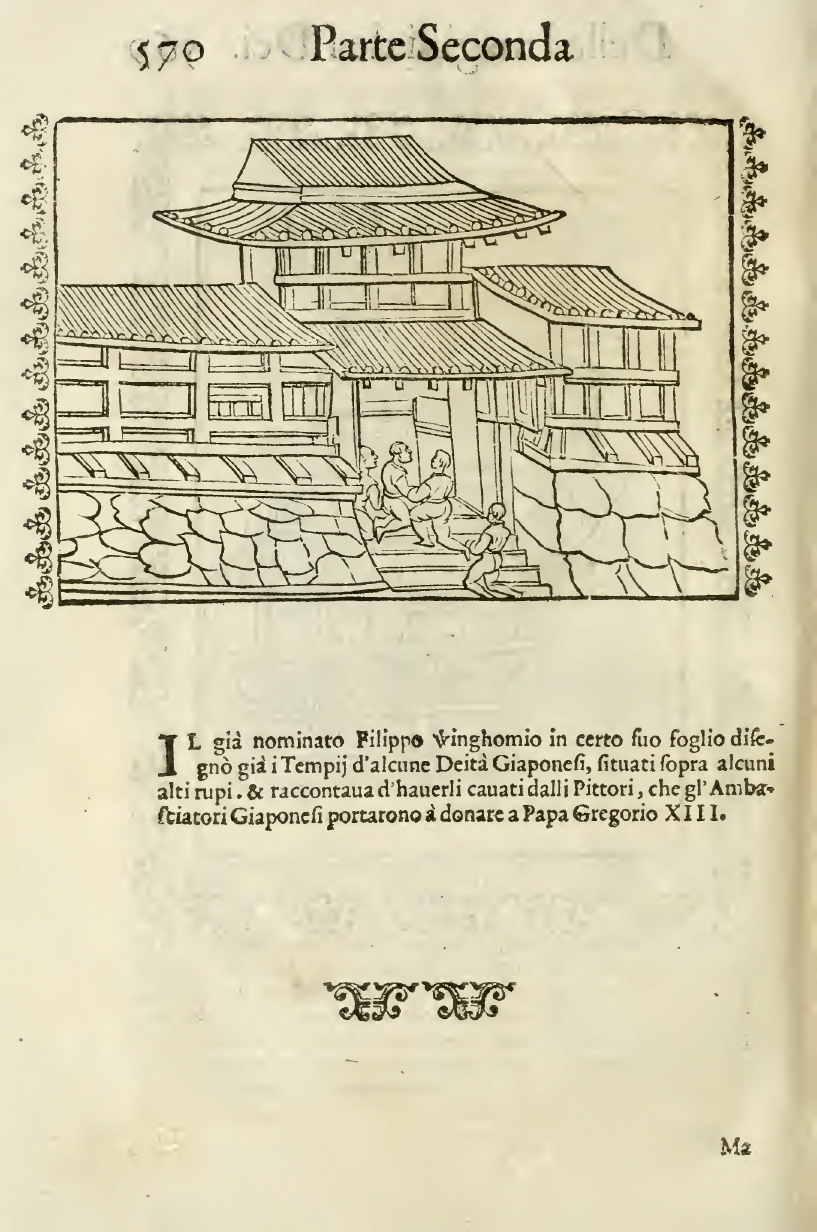 570 Parte Seconda
IL già nominato Filippo VVinghomio in certo ſuo foglio diſe-
gnò già i Tempij d'alcune Deità Giaponeſi, ſituati ſopra alcuni
alti rupi. & raccontaua d'hauerli cauati dalli Pittori, che gl'Amba-
ſciatori Giaponeſi portarono à donare a Papa Gregorio XIII.
Ma